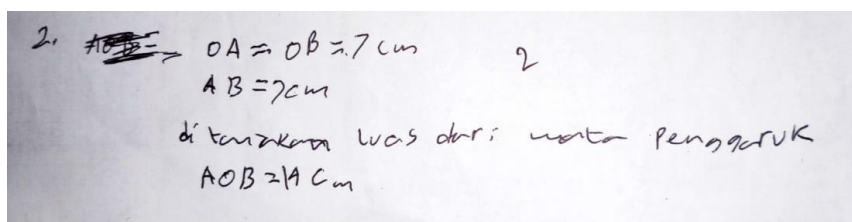 2. OA = OB = 7 cm 2
AB = 7 cm
ditanyakan luas dari mata penggaruk
AOB = 14 cm